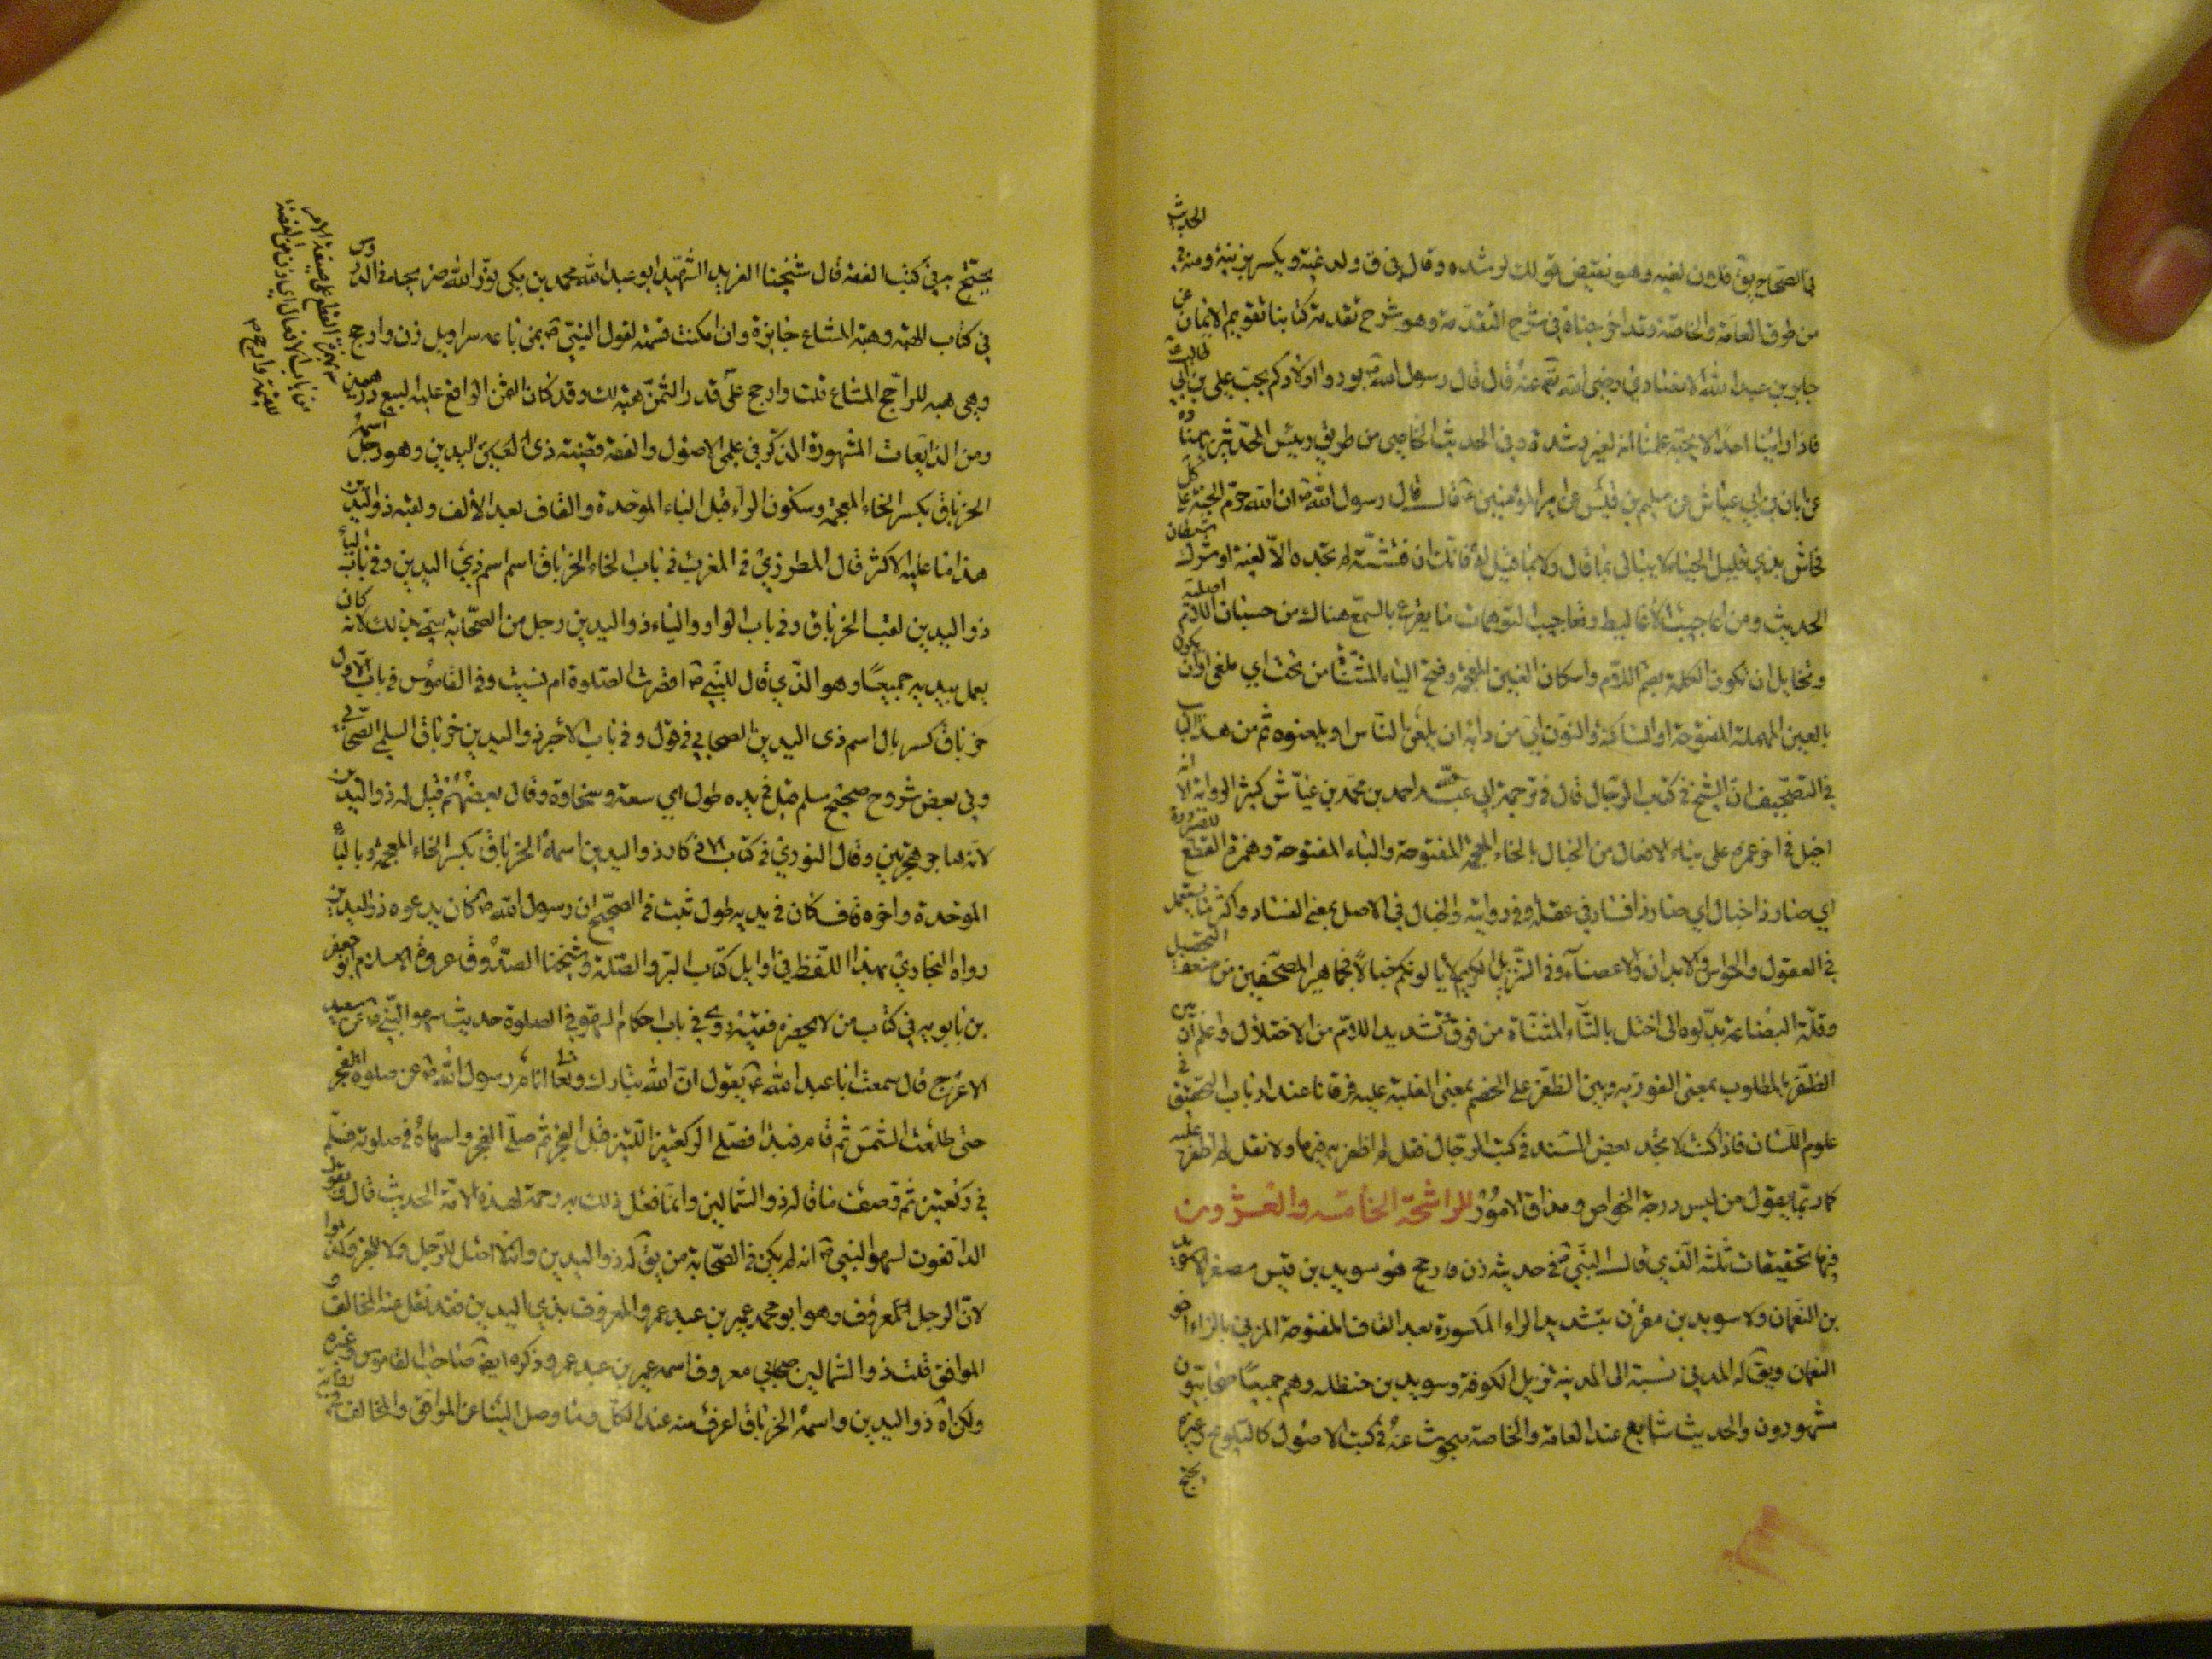 الحديث
في الصحاح يق فلان لغيه وهو نقيض قولك لرشده وقال في ق ولد غية ويكسر زنية ومنه في
من طرق العامة والخاصة وقد اخرجناه في شرح التقدمة وهو شرح تقدمة كتابنا تقويم الايمان عن
جابر بن عبد الله الانصاري رضي الله تعم عنه قال قال رسول الله ص بوروا اولادكم بحب علي بن ابي طالب
فاذا راينا احدا لا يحبه علمنا انه لغير رشدة وفي الحديث الخاصي من طريق رئيس المحدثين
عن ابان بن ابي عياش عن سليم بن قيس عن امير المؤمنين ع قال قال رسول الله ص ان الله حرم الجنة على كل
فحاش بذي قليل الحياء لا يبالي بما قال ولا بما قيل له فانك ان فتشته لم تجده الا لغية او شرك شيطان
الحديث ومن اعاجيب الاغاليط وتعاجيب التوهمات ما يقرع بالسمع هناك من حسبان اللام اصلية
وتخايل ان تكون الكلمة بضم اللام واسكان الغين المعجمة وفتح الياء المثناة من تحت اي ملغى او ان يكون
بالعين المهملة المفتوحة او الساكنة والنون اي من دابه ان يلعن الناس او يلعنوه ثم من هذا الباب
في التصحيف ان الشيخ في كتاب الرجال قال في ترجمة ابي عبد الله احمد بن محمد بن عياش كثير الرواية الا انه
اختل في اخر عمره على بناء الافعال من الخبال بالخاء المعجمة المفتوحة والباء المفتوحة وهمزة القطع للصيرورة
اي صار ذا خبال اي صار ذا فساد في عقله وفي روايته والخبال في الاصل بمعنى الفساد واكثر ما يستعمل
في العقول والحواس وفي الابدان والاعضاء وفي التنزيل الكريم لا يالونكم خبالا فجماهير المصحفين من ضعف التحصيل
وقلة البضاعة بدلوه الى اختل بالتاء المثناة من فوق وتشديد اللام من الاختلال واعلم ان بين
الظفر بالمطلوب بمعنى الفوز به وبين الظفر على الخصم بمعنى الغلبة عليه فرقانا عند ارباب التحقيق في
علوم اللسان فاذا كنت لا تجد بعض السند في كتب الرجال فقل لم اظفر به فيها ولا تقل لم اظفر عليه
كما ربما يقول من ليس درجة الخواص ومذاق الامور الراشحة الخامسة والعشرون
فيها تحقيقات ثلثة الذي قال النبي ص في حديثه زن وارجح هو سويد بن قيس
بن النعمان ولا سويد بن مقرن بتشديد الراء المكسورة بعد القاف المفتوحة المزني بالزاء اخو
النعمان ويق له المدني نسبة الى المدينة نزيل الكوفة وسويد بن حنظلة وهم جميعا صحابيون
مشهورون والحديث شايع عند العامة والخاصة مبحوث عنه في كتب الاصول كالتلويح وغيره
يحتج
يحتج به في كتب الفقه قال شيخنا الفريد الشهيد ابو عبد الله محمد بن مكي نور الله ضريحه في الدروس
في كتاب الهبة وهبة المشاع جايزة وان امكنت قسمته لقول النبي ص بمن باعه سراويل زن وارجح
وهي هبه للراجح المشاع قلت وارجح على قدر الثمن هبة لك وقد كان الثمن الواقع عليه البيع درهمين
ومن الذايعات المشهورة الذكر في علمي الاصول والفقه قضية ذي اليدين وهو رجل اسمه
الخرباق بكسر الخاء المعجمة وسكون الراء قبل الباء الموحدة والقاف بعد الالف ولقبه ذو اليدين
هذا ما عليه الاكثر قال المطرزي في المغرب في باب الخاء الخرباق اسم ذي اليدين وفي باب الياء
ذو اليدين لقب الخرباق وفي باب الواو والياء ذو اليدين رجل من الصحابة سمي بذلك لانه كان
يعمل بيديه جميعا وهو الذي قال للنبي ص اقصرت الصلوة ام نسيت وفي القاموس في باب الاول
خرباق كسربال اسم ذي اليدين الصحابي في قول وفي باب الاخير ذو اليدين خرباق السلمي الصحابي
وفي بعض شروح صحيح مسلم قيل في يده طول اي سعة وسخاوة وقال بعضهم قيل له ذو اليدين
لانه هاجر هجرتين وقال النووي في كتاب ذو اليدين اسمه الخرباق بكسر الخاء المعجمة وبالباء
الموحدة واخره قاف كان في يديه طول ثبت في الصحيح ان رسول الله ص كان يدعوه ذو اليدين
رواه البخاري بهذا اللفظ في اوايل كتاب البر والصلة وشيخنا الصدوق عروة الاسلام ابو جعفر
بن بابويه في كتاب من لا يحضره الفقيه روى في باب احكام السهو في الصلوة حديث سهو النبي ص عن سعيد
الاعرج قال سمعت ابا عبد الله ع يقول ان الله تبارك وتعالى انام رسول الله ص عن صلوة الفجر
حتى طلعت الشمس ثم قام فبدا فصلى الركعتين اللتين قبل الفجر ثم صلى الفجر واسهاه في صلوته فسلم
في ركعتين ثم وصف ما قاله ذو الشمالين وانما فعل ذلك به رحمة لهذه الامة الحديث قال ويقول
الدافعون لسهو النبي ص انه لم يكن في الصحابة من يق له ذو اليدين وانه لا اصل للرجل ولا للخبر وكذبوا
لان الرجل معروف وهو ابو محمد عمير بن عبد عمرو المعروف بذي اليدين فقد نقل عنه المخالف و
الموافق قلت ذو الشمالين صحابي معروف اسمه عمير بن عبد عمرو ذكره ايضا صاحب القاموس وغيره
ولكن ذو اليدين واسمه الخرباق اعرف منه عند الكل وما وصل الينا عن الموافق والمخالف